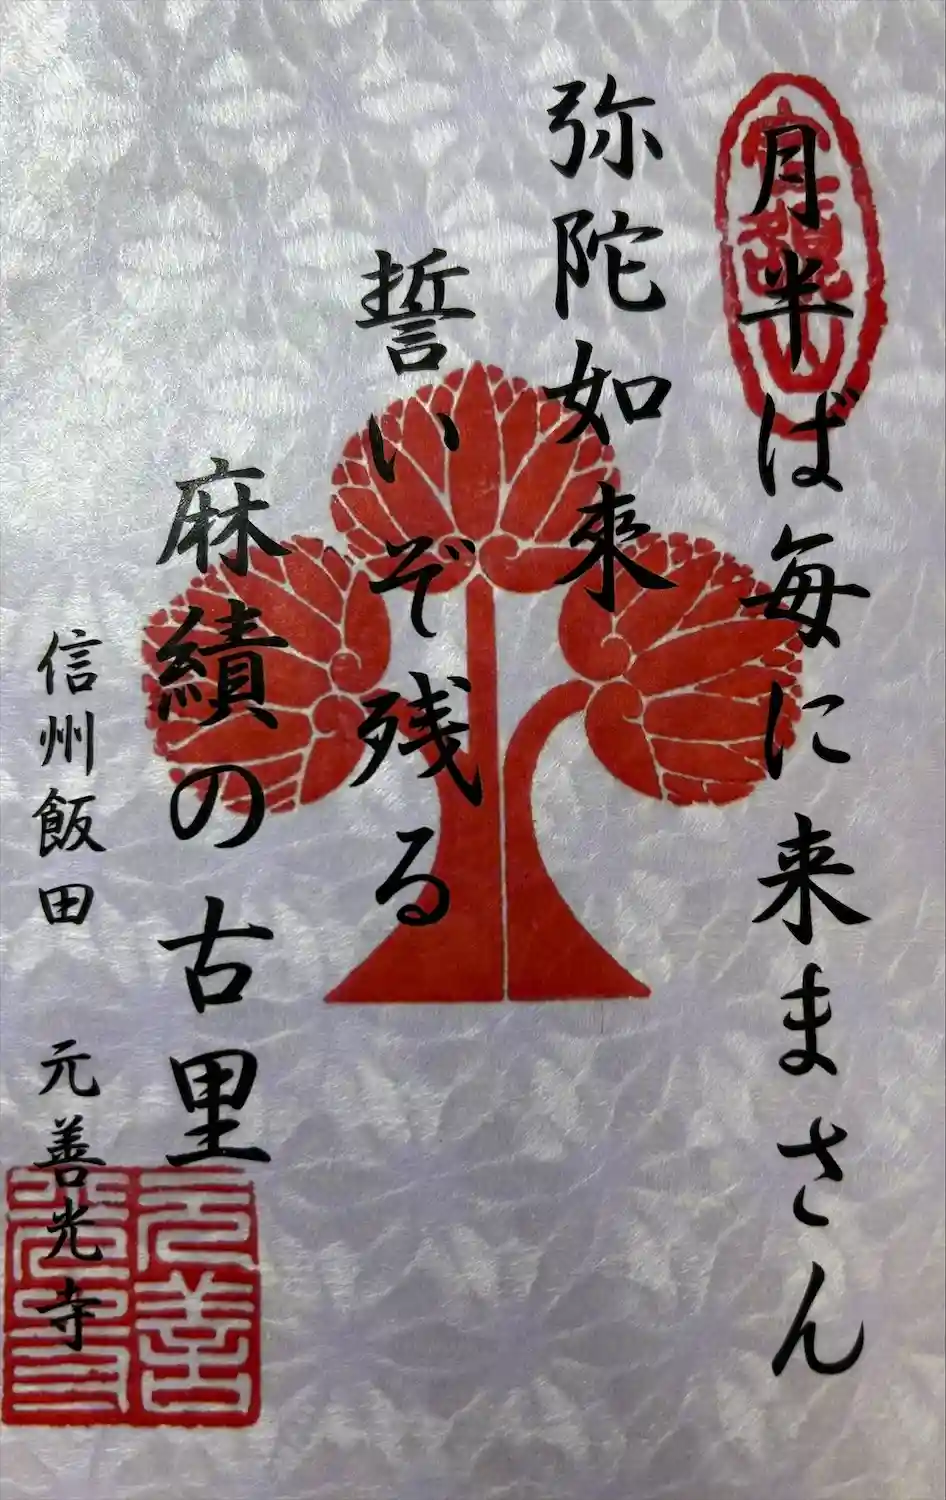 月半ば毎に来まさん
弥陀如來
誓いぞ残る
麻績の古里
信州飯田 元善光寺
元善光寺